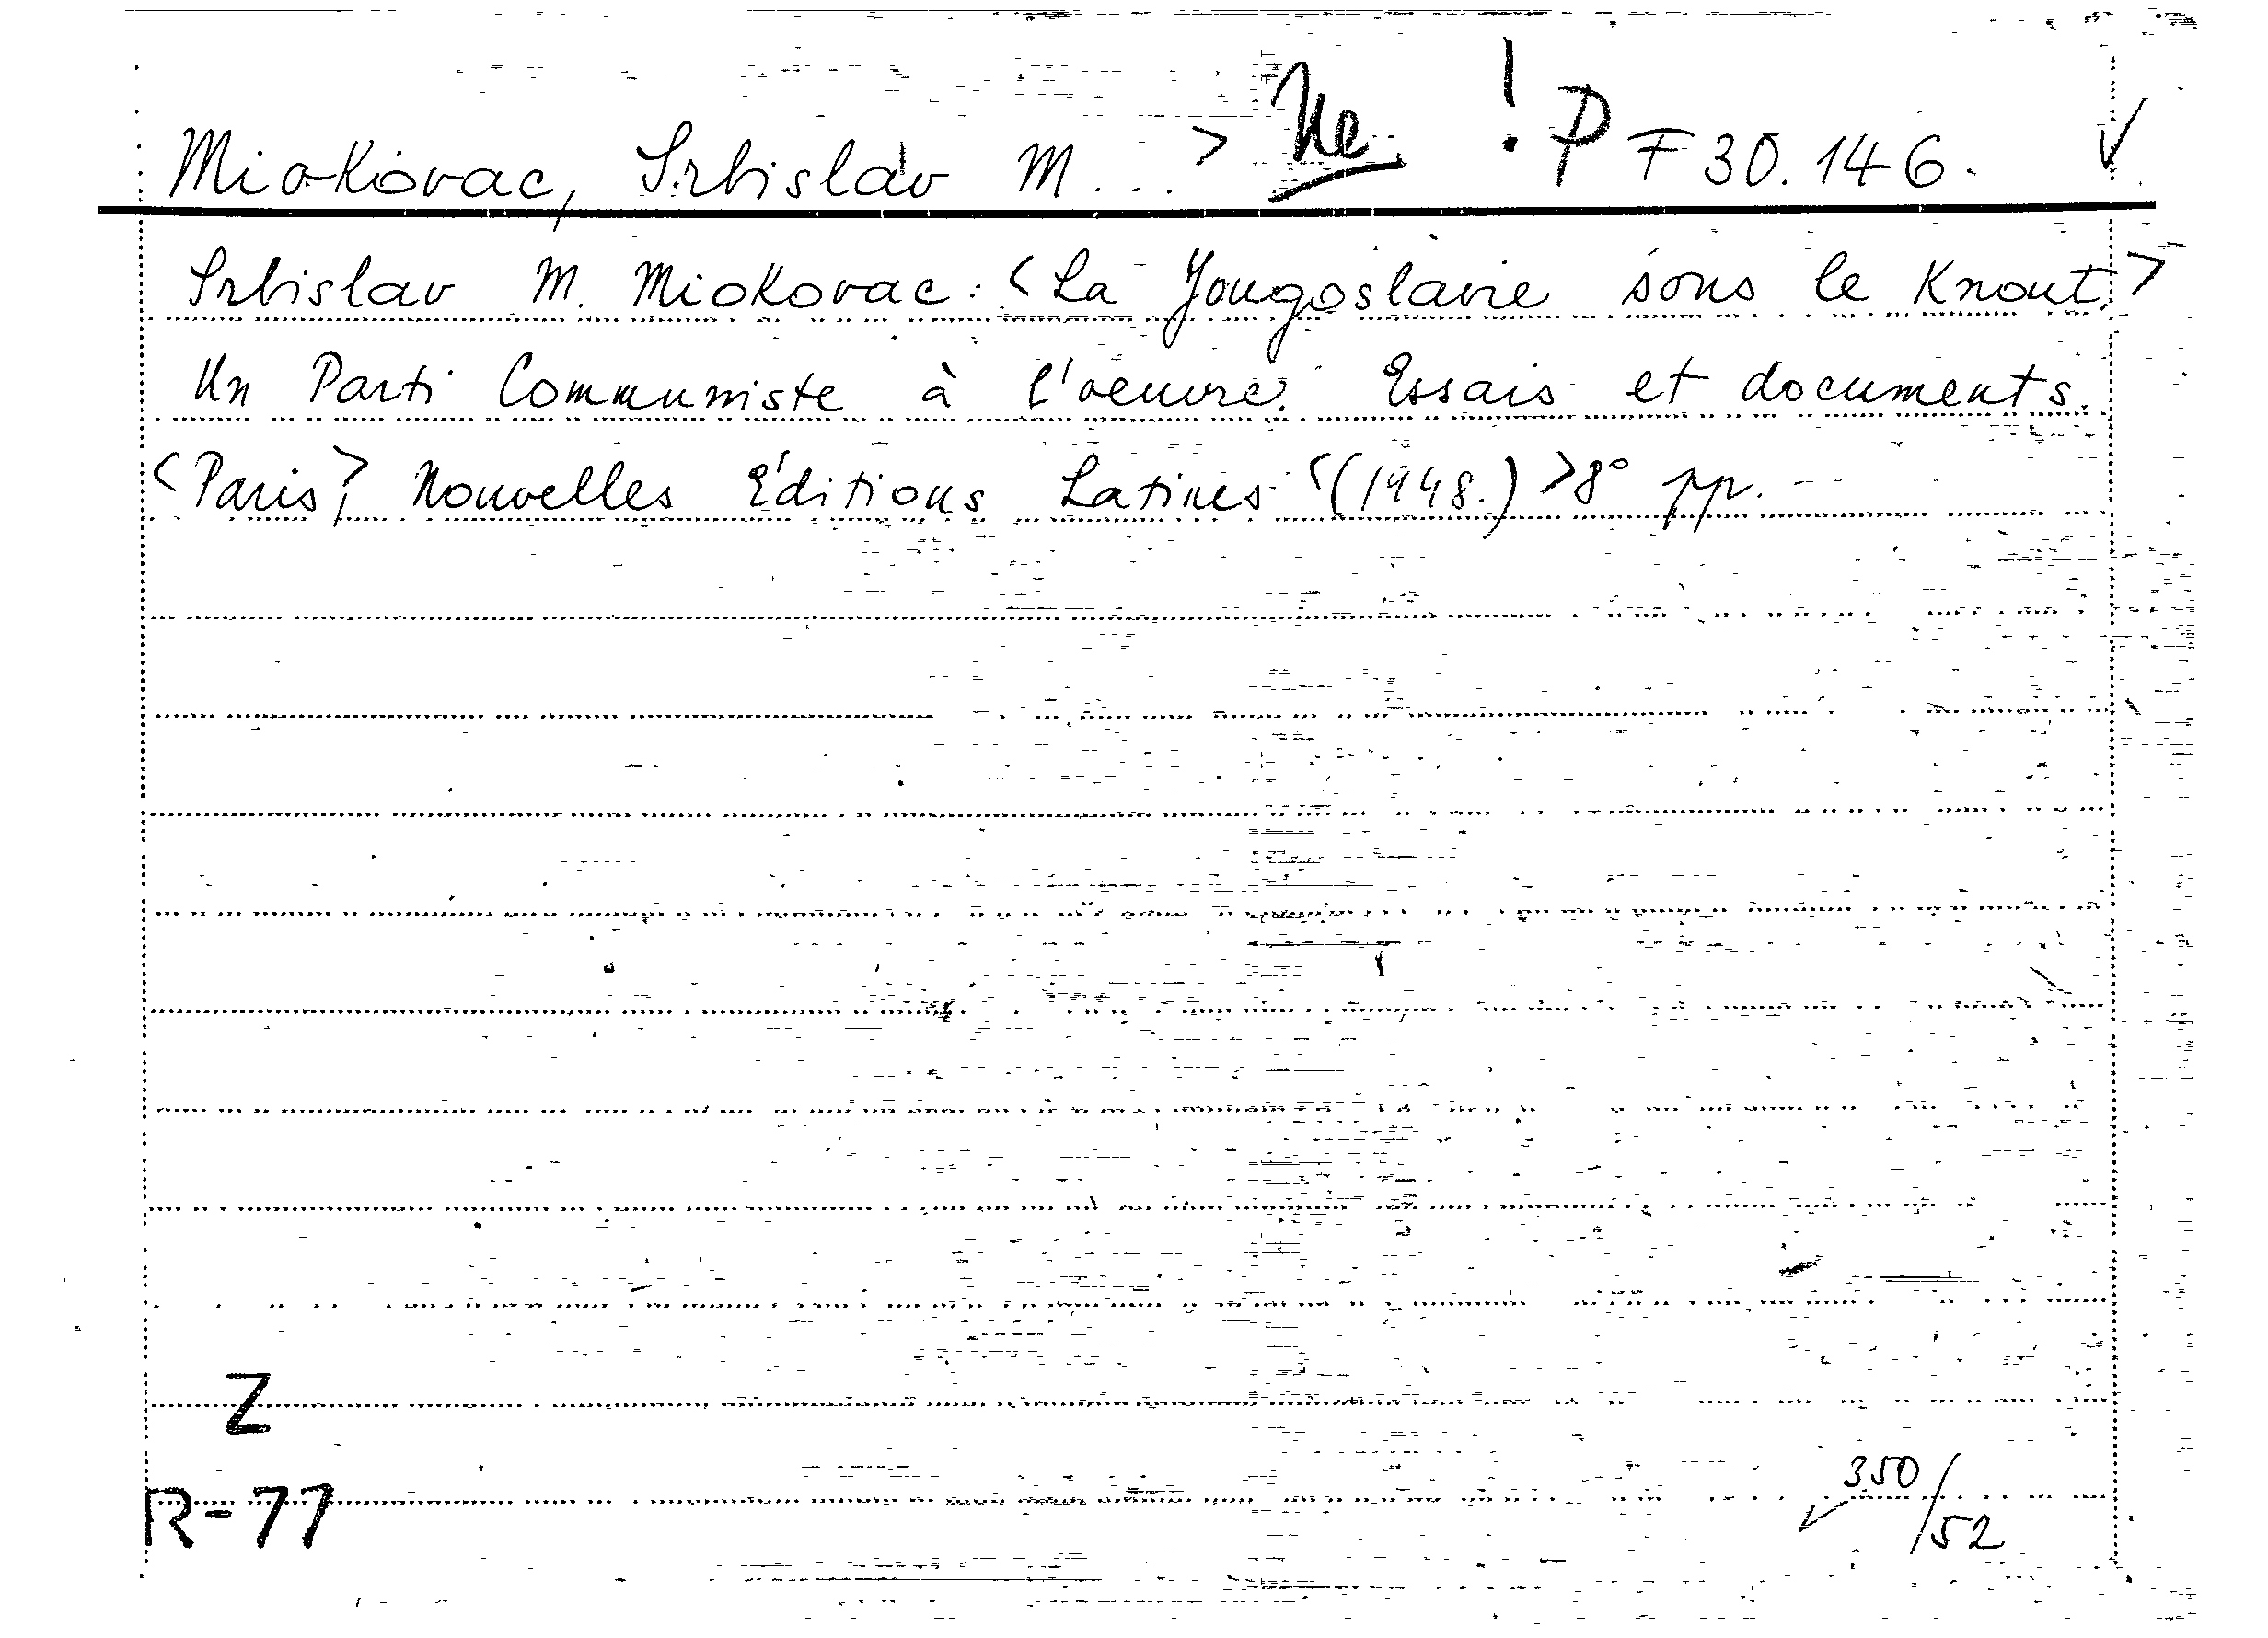 Miokovac, Srbislav M...> Ne ! P F 30.146.
Srbislav M. Miokovac: <La Yougoslavie sous le Knout.>
Un Parti Communiste à l'oeuvre. Essais et documents.
<Paris>, Nouvelles Éditions Latines <(1948.)> 8° pp.
Z
R-77
350/52